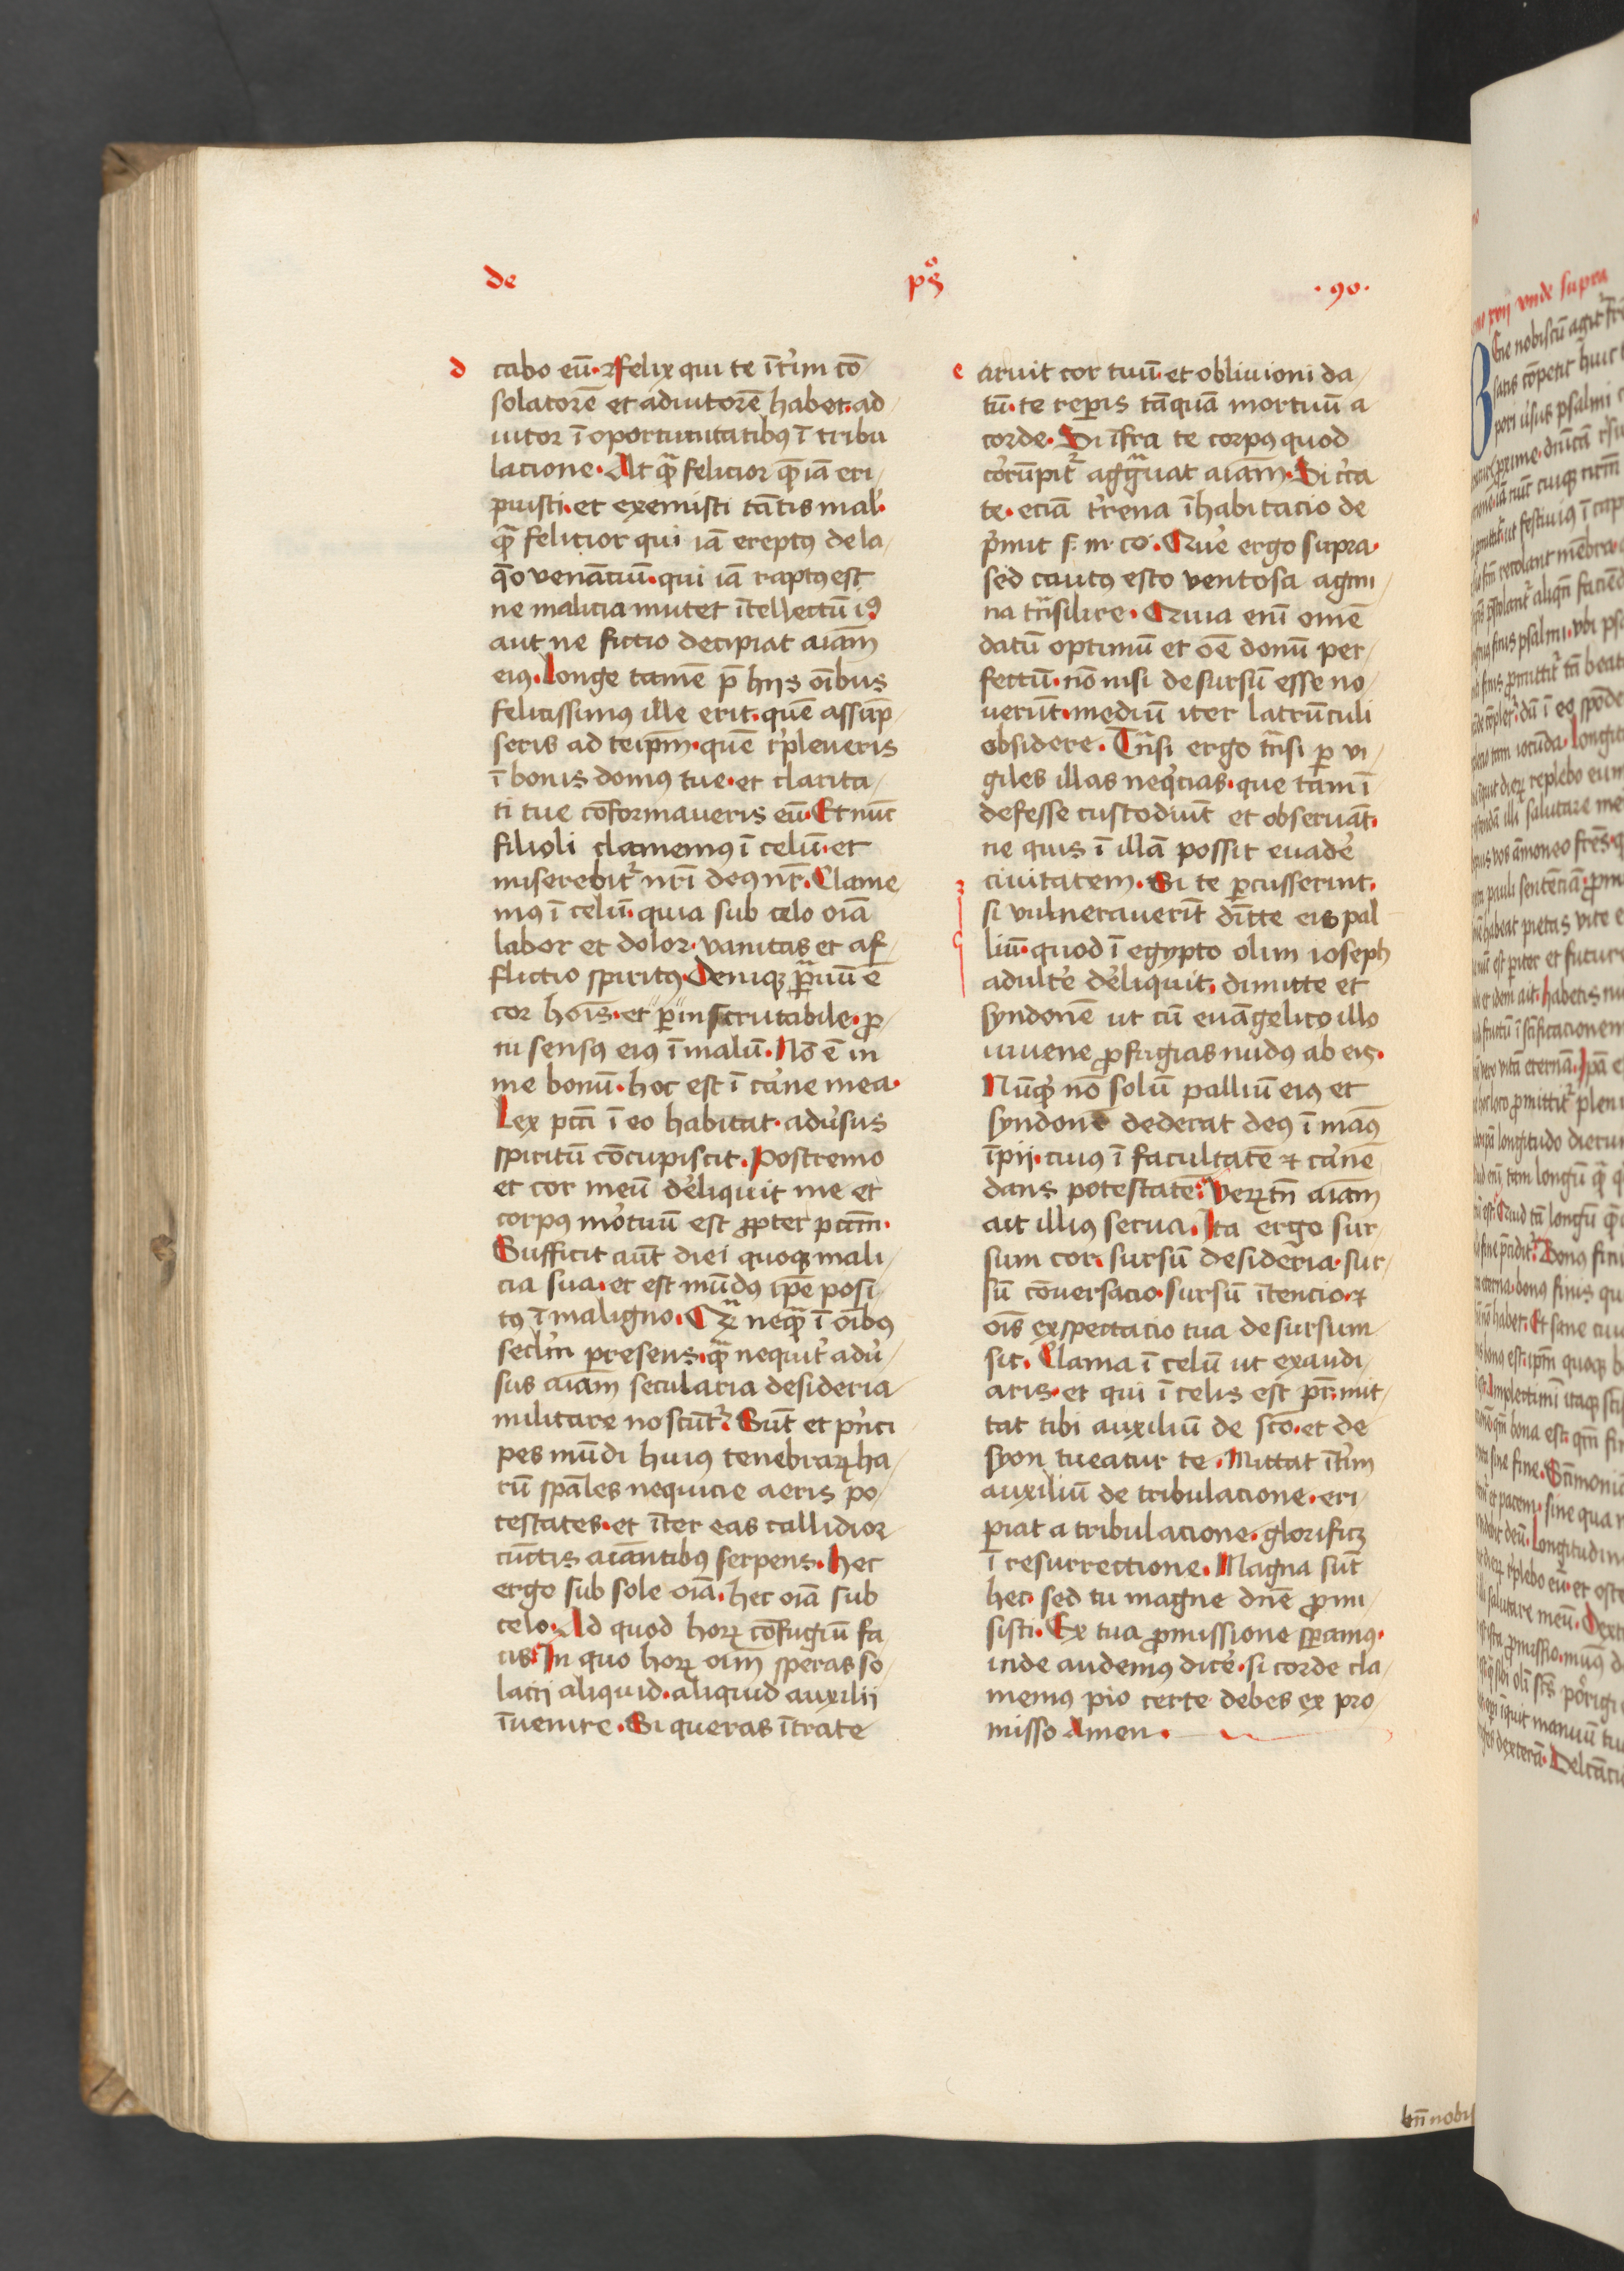 de pº₉ · 90 ·
d
cabo eū · O felix qui te īt'im cō
solatorē et adiutorē habet · ad
iutor ī oportunitatibꝰ ī tribu
lacione · At qͣ felicior quē iā eri
puisti · et exemisti tātis mal' ·
qͣ felicior qui iā ereptꝰ de la
q̄o venāciū · qui iā raptꝰ est
ne malicia mutet ītellectū iꝰ
aut ne fictio decipiat aīam
eiꝰ · Longe tamē p̄ hijs oībus
felicissimꝰ ille erit · quē assūp
seris ad teip̄m · quē r'pleueris
ī bonis domꝰ tue · et clarita
ti tue cōformaueris eū · Et nūc
filioli clamemꝰ ī celū · et
miserebit' nr̄i deꝰ nr̄ · Clame
mꝰ ī celū · quia sub celo oīa
labor et dolor · vanitas et af
flictio spiritꝰ · Deniqꝫ pͣuū ē
cor hoīs · et ꝑinscrutabile · ꝓ
ni sensꝰ eiꝰ ī malū · Nō ē in
me bonū · hoc est ī carne mea ·
Lex pcc̄i ī eo habitat · adu'sus
spiritū cōcupiscit · Postremo
et cor meū de'liquit me et
corpꝰ mo'tuū est ꝓpter pcc̄m ·
Sufficit aūt diei quoqꝫ mali
cia sua · et est mūdꝰ ip̄e posi
tꝰ ī maligno · Qͣꝫ neqͣ ī oībꝰ
secl'm presens · qͣ nequit' adu'
sus aīam secularia desideria
militare noscūt' · Sūt et p'nci
pes mūdi huiꝰ tenebraꝝ ha
rū sp̄ales nequicie aeris po
testates · et īter eas callidior
cūctis aīantibꝰ serpens · Hec
ergo sub sole oīa · hec oīa sub
celo · Ad quod hoꝝ cōfugiū fa
cis · In quo hoꝝ oīm speras so
lacij aliquid · aliquid auxilii
īuenire · Si queras ītra te
e
aruit cor tuū · et obliuioni da
tū · te reꝑis tāquā mortuū a
corde · Si īfra te corpꝰ quod
corrūpit' aggͣuat aīam · Si c'ca
te · eciā t'rena īhabitacio de
p'mit s. m. co. Que' ergo supra ·
sed cautꝰ esto ventosa agmi
na trāsilire · Quia enī omē
datū optimū et oē donū per
fectū · nō nisi desursū esse no
uerūt · mediū iter latrūculi
obsidere · Trāsi ergo trāsi ꝑ vi
giles illas neq'cias · que tam ī
defesse custodiūt et obseruāt ·
ne quis ī illā possit euade'
ciuitatem · Si te ꝑcusserint ·
si vulnerauerīt dītte eis pal
liū · quod ī egypto olim ioseph
adulte' de'liquit · dimitte et
syndonē ut cū euāgelico illo
iuuene ꝓfugias nudꝰ ab eis ·
Nūq'd nō solū palliū eiꝰ et
syndonē dederat deꝰ ī manꝰ
īpij · cuiꝰ ī facultatē et carnē
dans potestatē · Veꝝt̄n aīam
ait illius serua · Ita ergo sur
sum cor · sursū desideria · sur
sū cōuersacio · sursū ītencio · et
oīs exspectacio tua desursum
sit · Clama ī celū ut exaudi
aris · et qui ī celis est pr̄ · mit
tat tibi auxiliū de sc̄o · et de
syon tueatur te · Mittat īt'im
auxiliū de tribulacione · eri
piat a tribulacione · glorificꝫ
ī resurrectione · Magna sūt
hec · sed tu magne dn̄e ꝓmi
sisti · Ex tua ꝓmissione speramꝰ ·
inde audemꝰ dice' · si corde cla
memꝰ pio certe debes ex pro
misso Amen ·